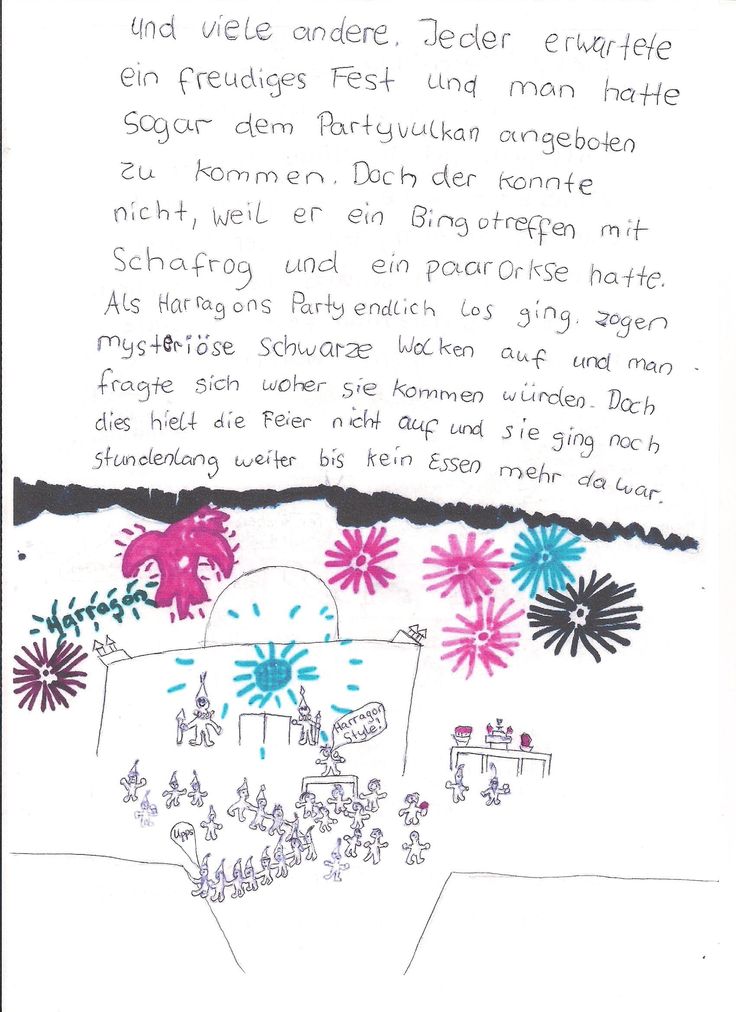 und viele andere. Jeder erwartete
ein freudiges Fest und man hatte
sogar dem Partyvulkan angeboten
zu kommen. Doch der konnte
nicht, weil er ein Bingotreffen mit
Schafrog und ein paar Orkse hatte.
Als Harragons Party endlich los ging. zogen
mysteriöse schwarze Wolken auf und man
fragte sich woher sie kommen würden. Doch
dies hielt die Feier nicht auf und sie ging noch
stundenlang weiter bis kein Essen mehr da war.
Harragon
Harragon
Style!
Upps